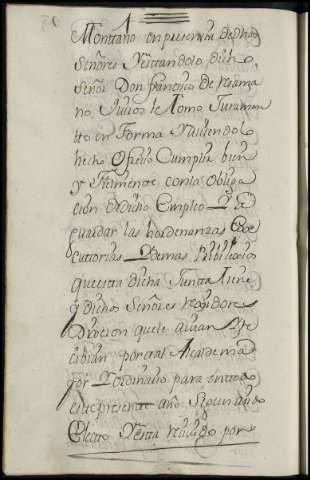 Montaño en presencia de dhos
Señores Yestandolo, dicho,
Señor Don francisco de
no, Juices le tomo Juramen
tto en Forma Yaviendolo
hecho Ofrecio Cumplir bien
y Fielmente, con la obliga
cion de dicho Empleo Y de
guardar las hordenanzas Exe
cutorias Ydemas Pribilexios
quee esta dicha Junta tiene
y dichos Señores rexidores
Dixeron que le avian Y Re
cibian por tal Alcalde ma
yor Y ordinario para en todo
este presente año Segun auido
Electo Y esta reciuido por